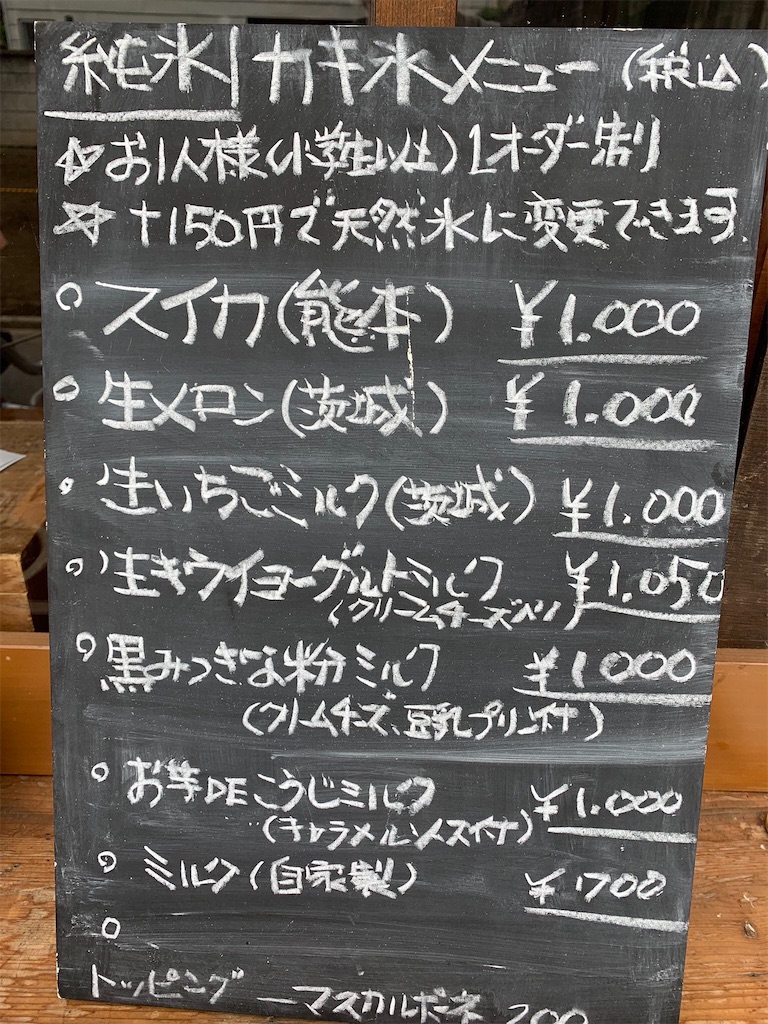 純氷 カキ氷メニュー (税込)
☆お1人様(小学生以上)1オーダー制
☆ +150円で天然氷に変更できます。
○ スイカ(熊本) ¥1.000
○ 生メロン(茨城) ¥1.000
○ 生いちごミルク(茨城) ¥1.000
○ 生キウイヨーグルトミルク ¥1.050
(クリームチーズ入り)
○ 黒みつきな粉ミルク ¥1000
(クリームチーズ、豆乳プリン付)
○ お芋DEこうじミルク ¥1.000
(キャラメルソース付)
○ ミルク(自家製) ¥700
○
トッピング ーマスカルポーネ 200